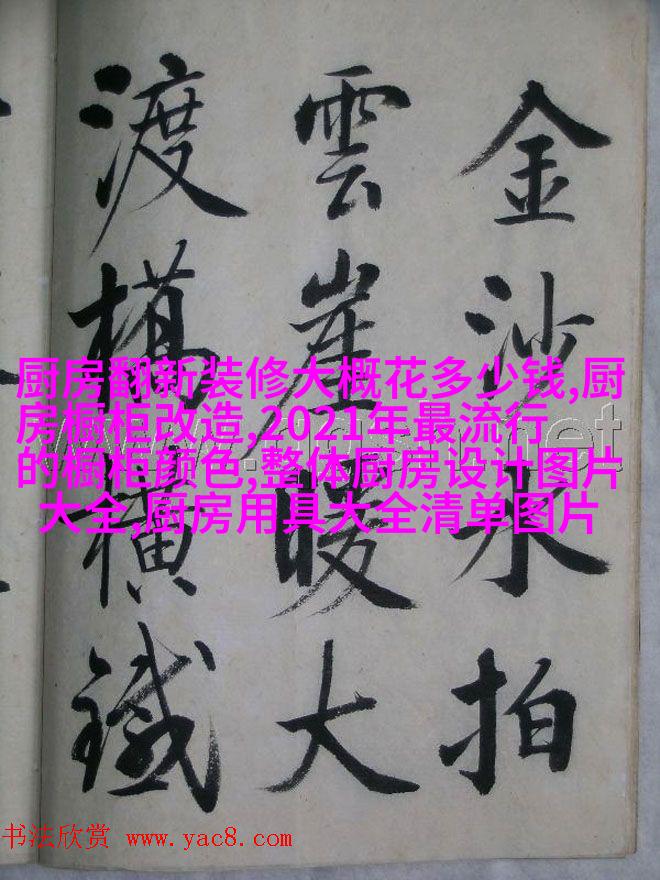 金沙水拍
雲崖暖大
渡橋橫鐵
厨房翻新装修大概花多少钱,厨
房橱柜改造,2021年最流行
的橱柜颜色,整体厨房设计图片
大全,厨房用具大全清单图片
书法欣赏 www.yac8.com